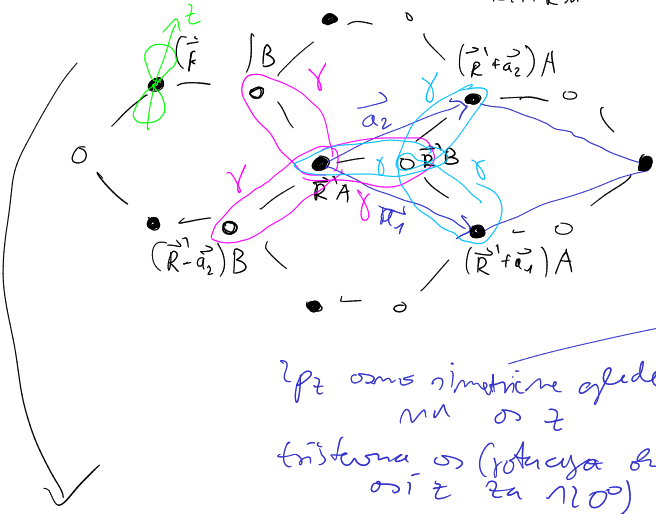 z
B
γ
(R⃗'+a⃗₂)A
γ
a⃗₂
γ
R⃗'A
γ
R⃗'B
γ
γ
a⃗₁
(R⃗'-a⃗₂)B
(R⃗'+a⃗₁)A
2pz osno simetrične glede
na os z
trištevna os (rotacija
osi z za 120°)